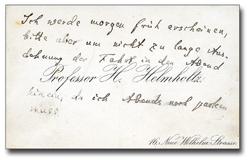 Ich werde morgen früh erscheinen,
bitte aber um nicht zu lange Aus-
dehnung der Fahrt in den Abend
Professor H. Helmholtz.
hinein, da ich Abends noch packen
muß.
16. Neue Wilhelm Strasse.